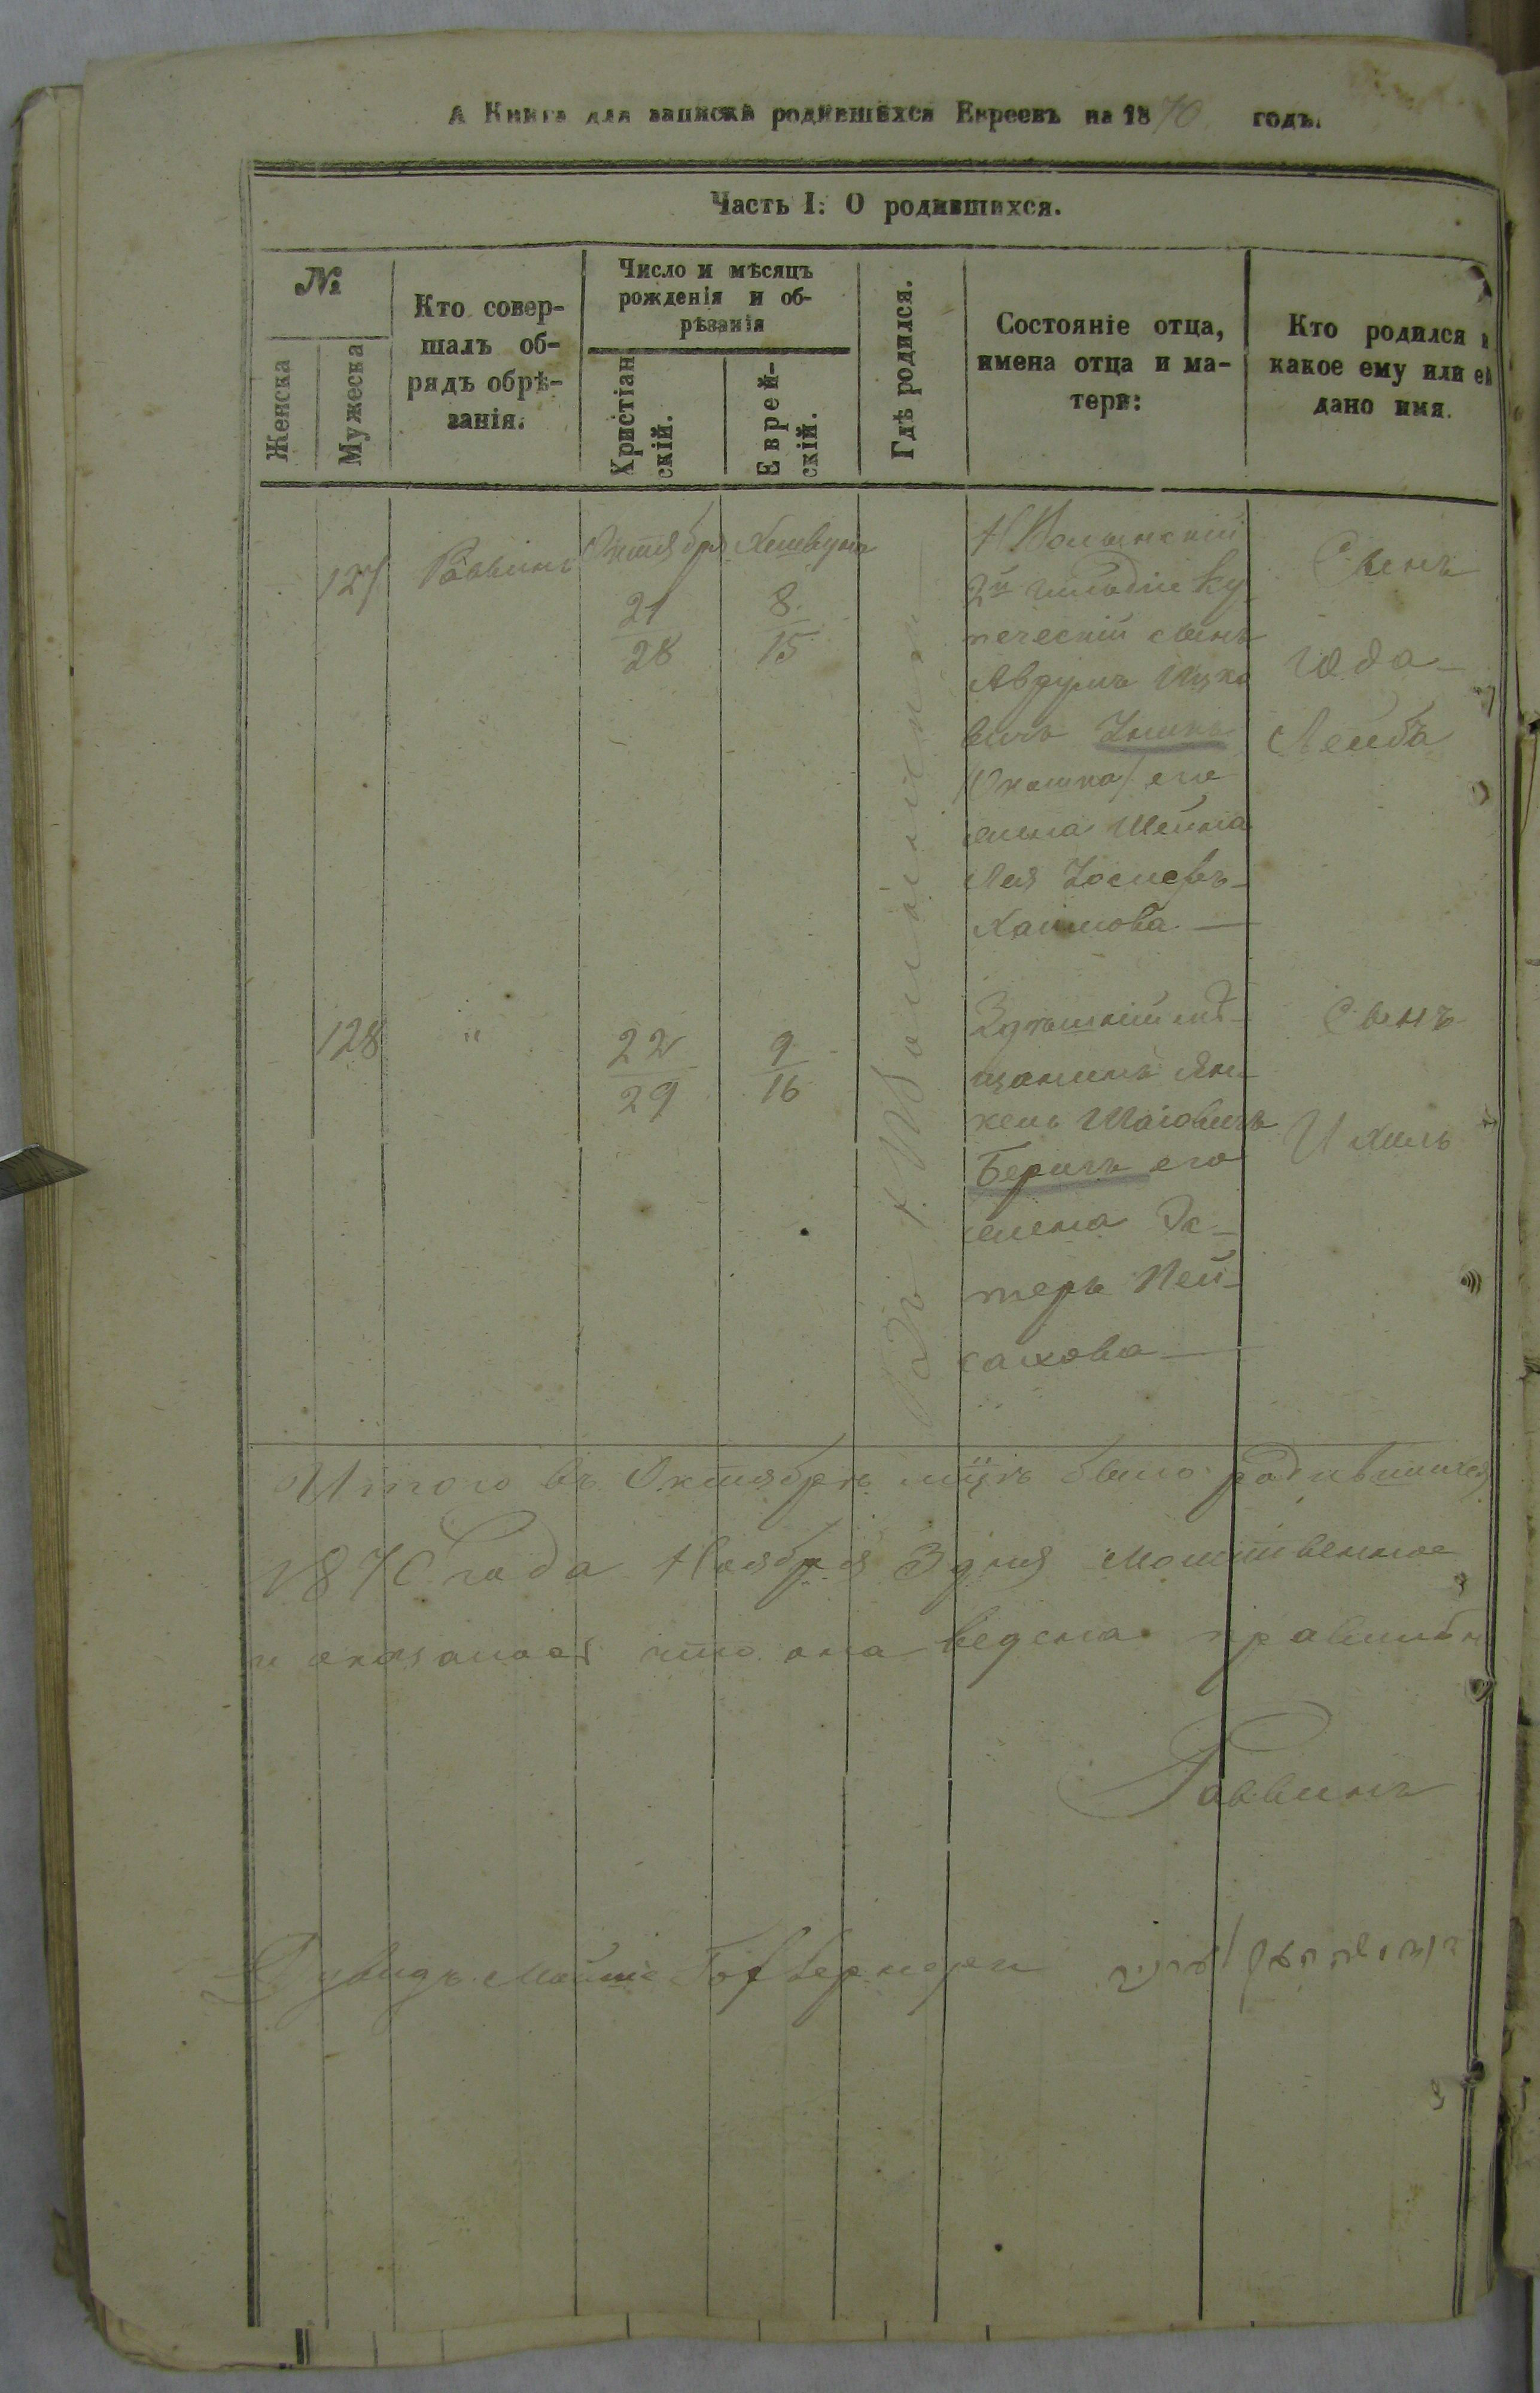 А Книга для записки родившихся Евреевъ на 1870 годъ.
Часть I. О родившихся.
№
Женска
Мужеска
Кто совер-
шалъ об-
рядъ обрѣ-
занія.
Число и мѣсяцъ
рожденія и об-
рѣзанія
Христіан
скій.
Еврей-
скій.
Гдѣ родился.
Состояніе отца,
имена отца и ма-
тери:
Кто родился и
какое ему или ей
дано имя.
127
Раввинъ
Октября
21
28
Хешвуна
8
15
Н Волынскій
2й гильдіи ку
печескій сынъ
Авзумъ Ицко
вичъ
его
жена Шейна
Лея Іосифъ-
Хаимова
Сынъ
Юда-
Лейба
128
"
22
29
9
16
Въ г. Н Волынскѣ
Здѣшній мѣ-
щанинъ Ян-
кель Шаіовичъ
Беричъ его
жена Эс-
теръ Пей-
сахова
Сынъ
Ихиль
Итого въ Октябрѣ м-цѣ было родившихся
1870 года Ноября 3 дня
и оказалось что она ведена правильно
Раввинъ
Дувидъ Мойше